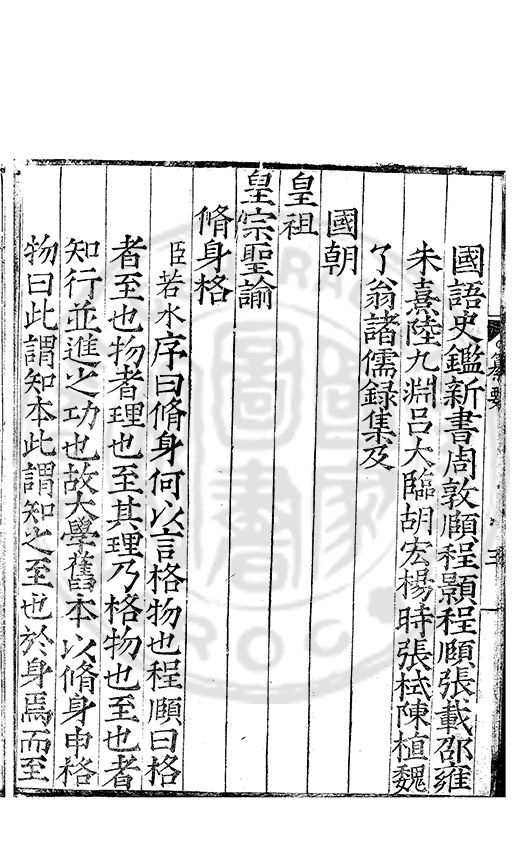 國語史鑑新書周敦頤程顥程頤張載邵雍
朱熹陸九淵呂大臨胡宏楊時張栻陳植魏
了翁諸儒録集及
國朝
皇祖
皇宗聖諭
脩身格
臣若水序曰脩身何以言格物也程頤曰格
者至也物者理也至其理乃格物也至也者
知行並進之功也故大學舊本以脩身申格
物曰此謂知本此謂知之至也於身焉而至
纂要
三